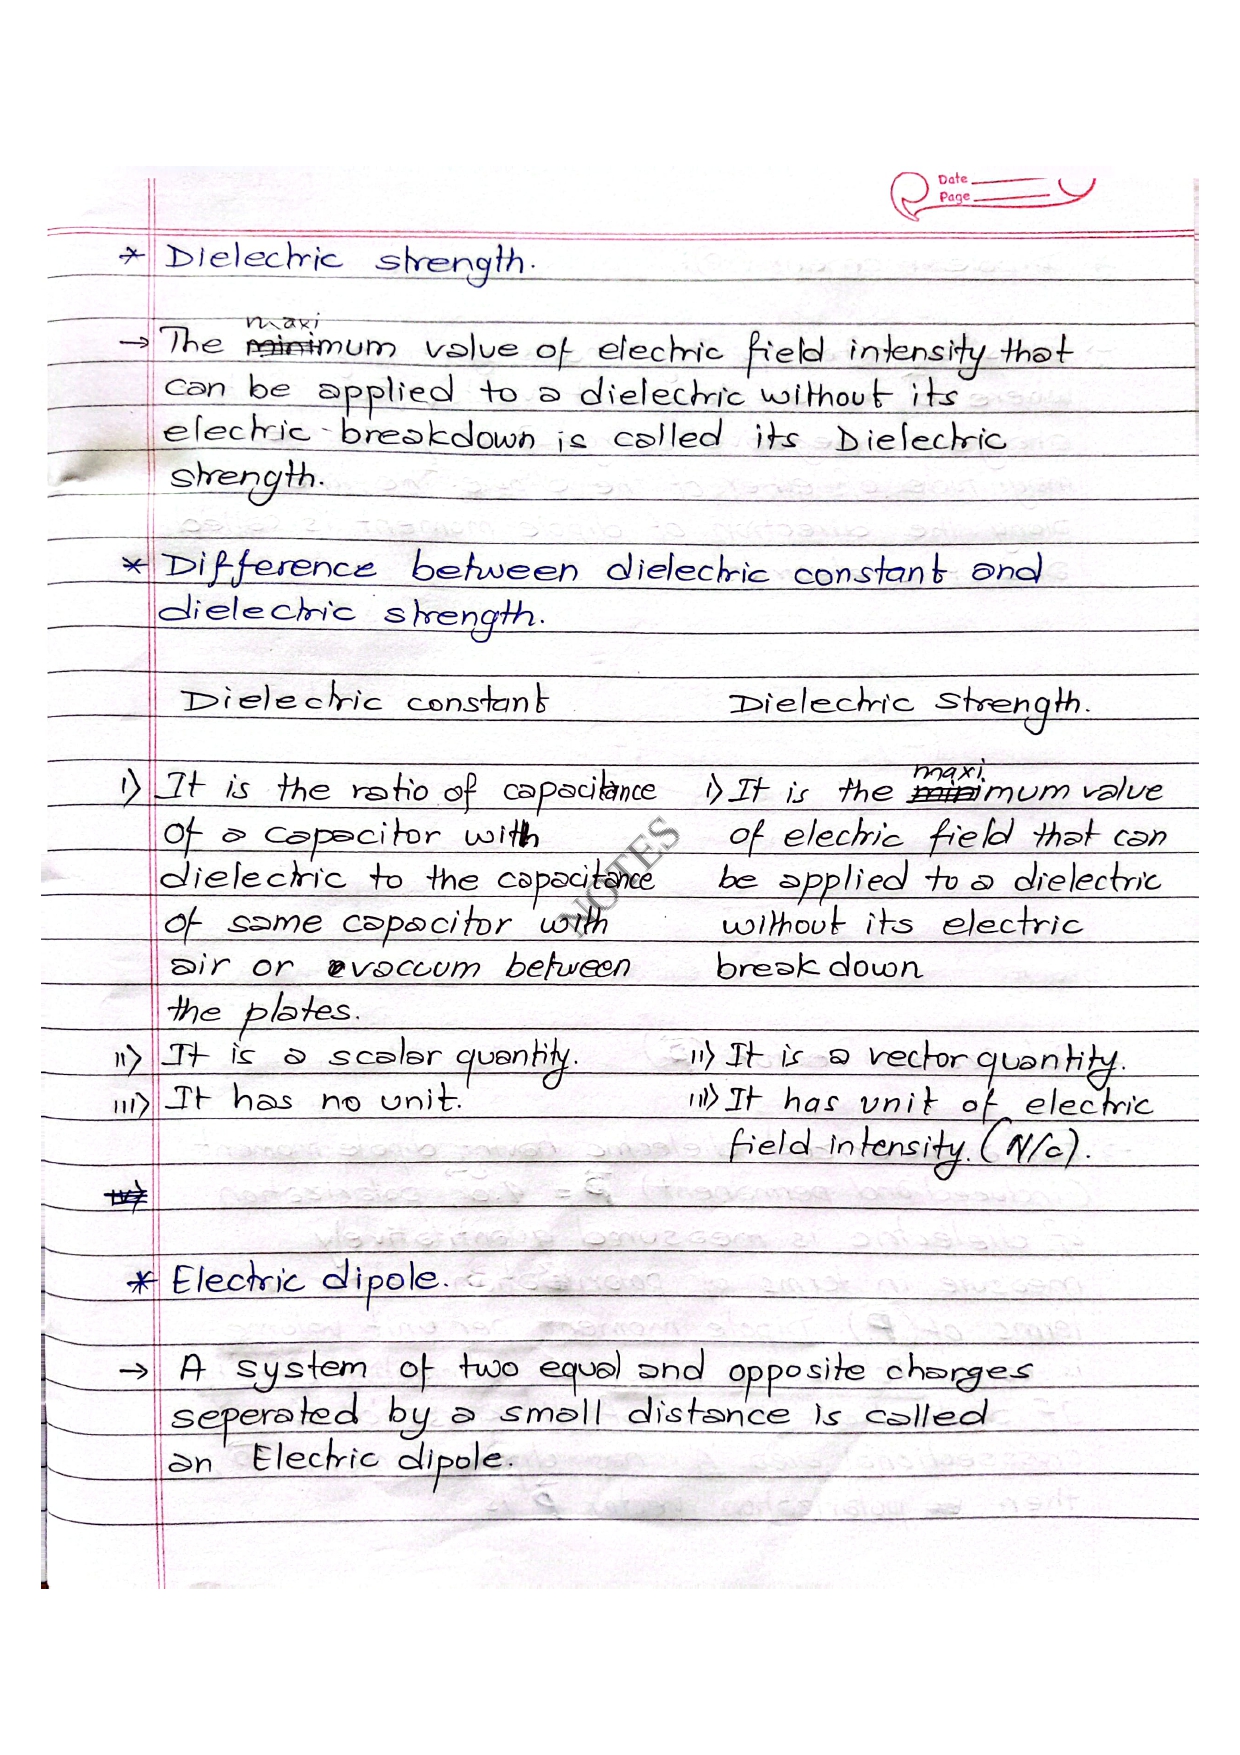 Date
Page
* Dielectric strength.
maxi
→ The minimum value of electric field intensity that
can be applied to a dielectric without its
electric breakdown is called its Dielectric
strength.
* Difference between dielectric constant and
dielectric strength.
Dielectric constant
i) It is the ratio of capacitance
of a capacitor with
dielectric to the capacitance
of same capacitor with
air or vaccum between
the plates.
ii) It is a scalar quantity.
iii) It has no unit.
iv)
Dielectric Strength.
maxi
i) It is the minimum value
of electric field that can
be applied to a dielectric
without its electric
break down
ii) It is a vector quantity.
iii) It has unit of electric
field intensity. (N/c).
NOTES
* Electric dipole.
→ A system of two equal and opposite charges
seperated by a small distance is called
an Electric dipole.